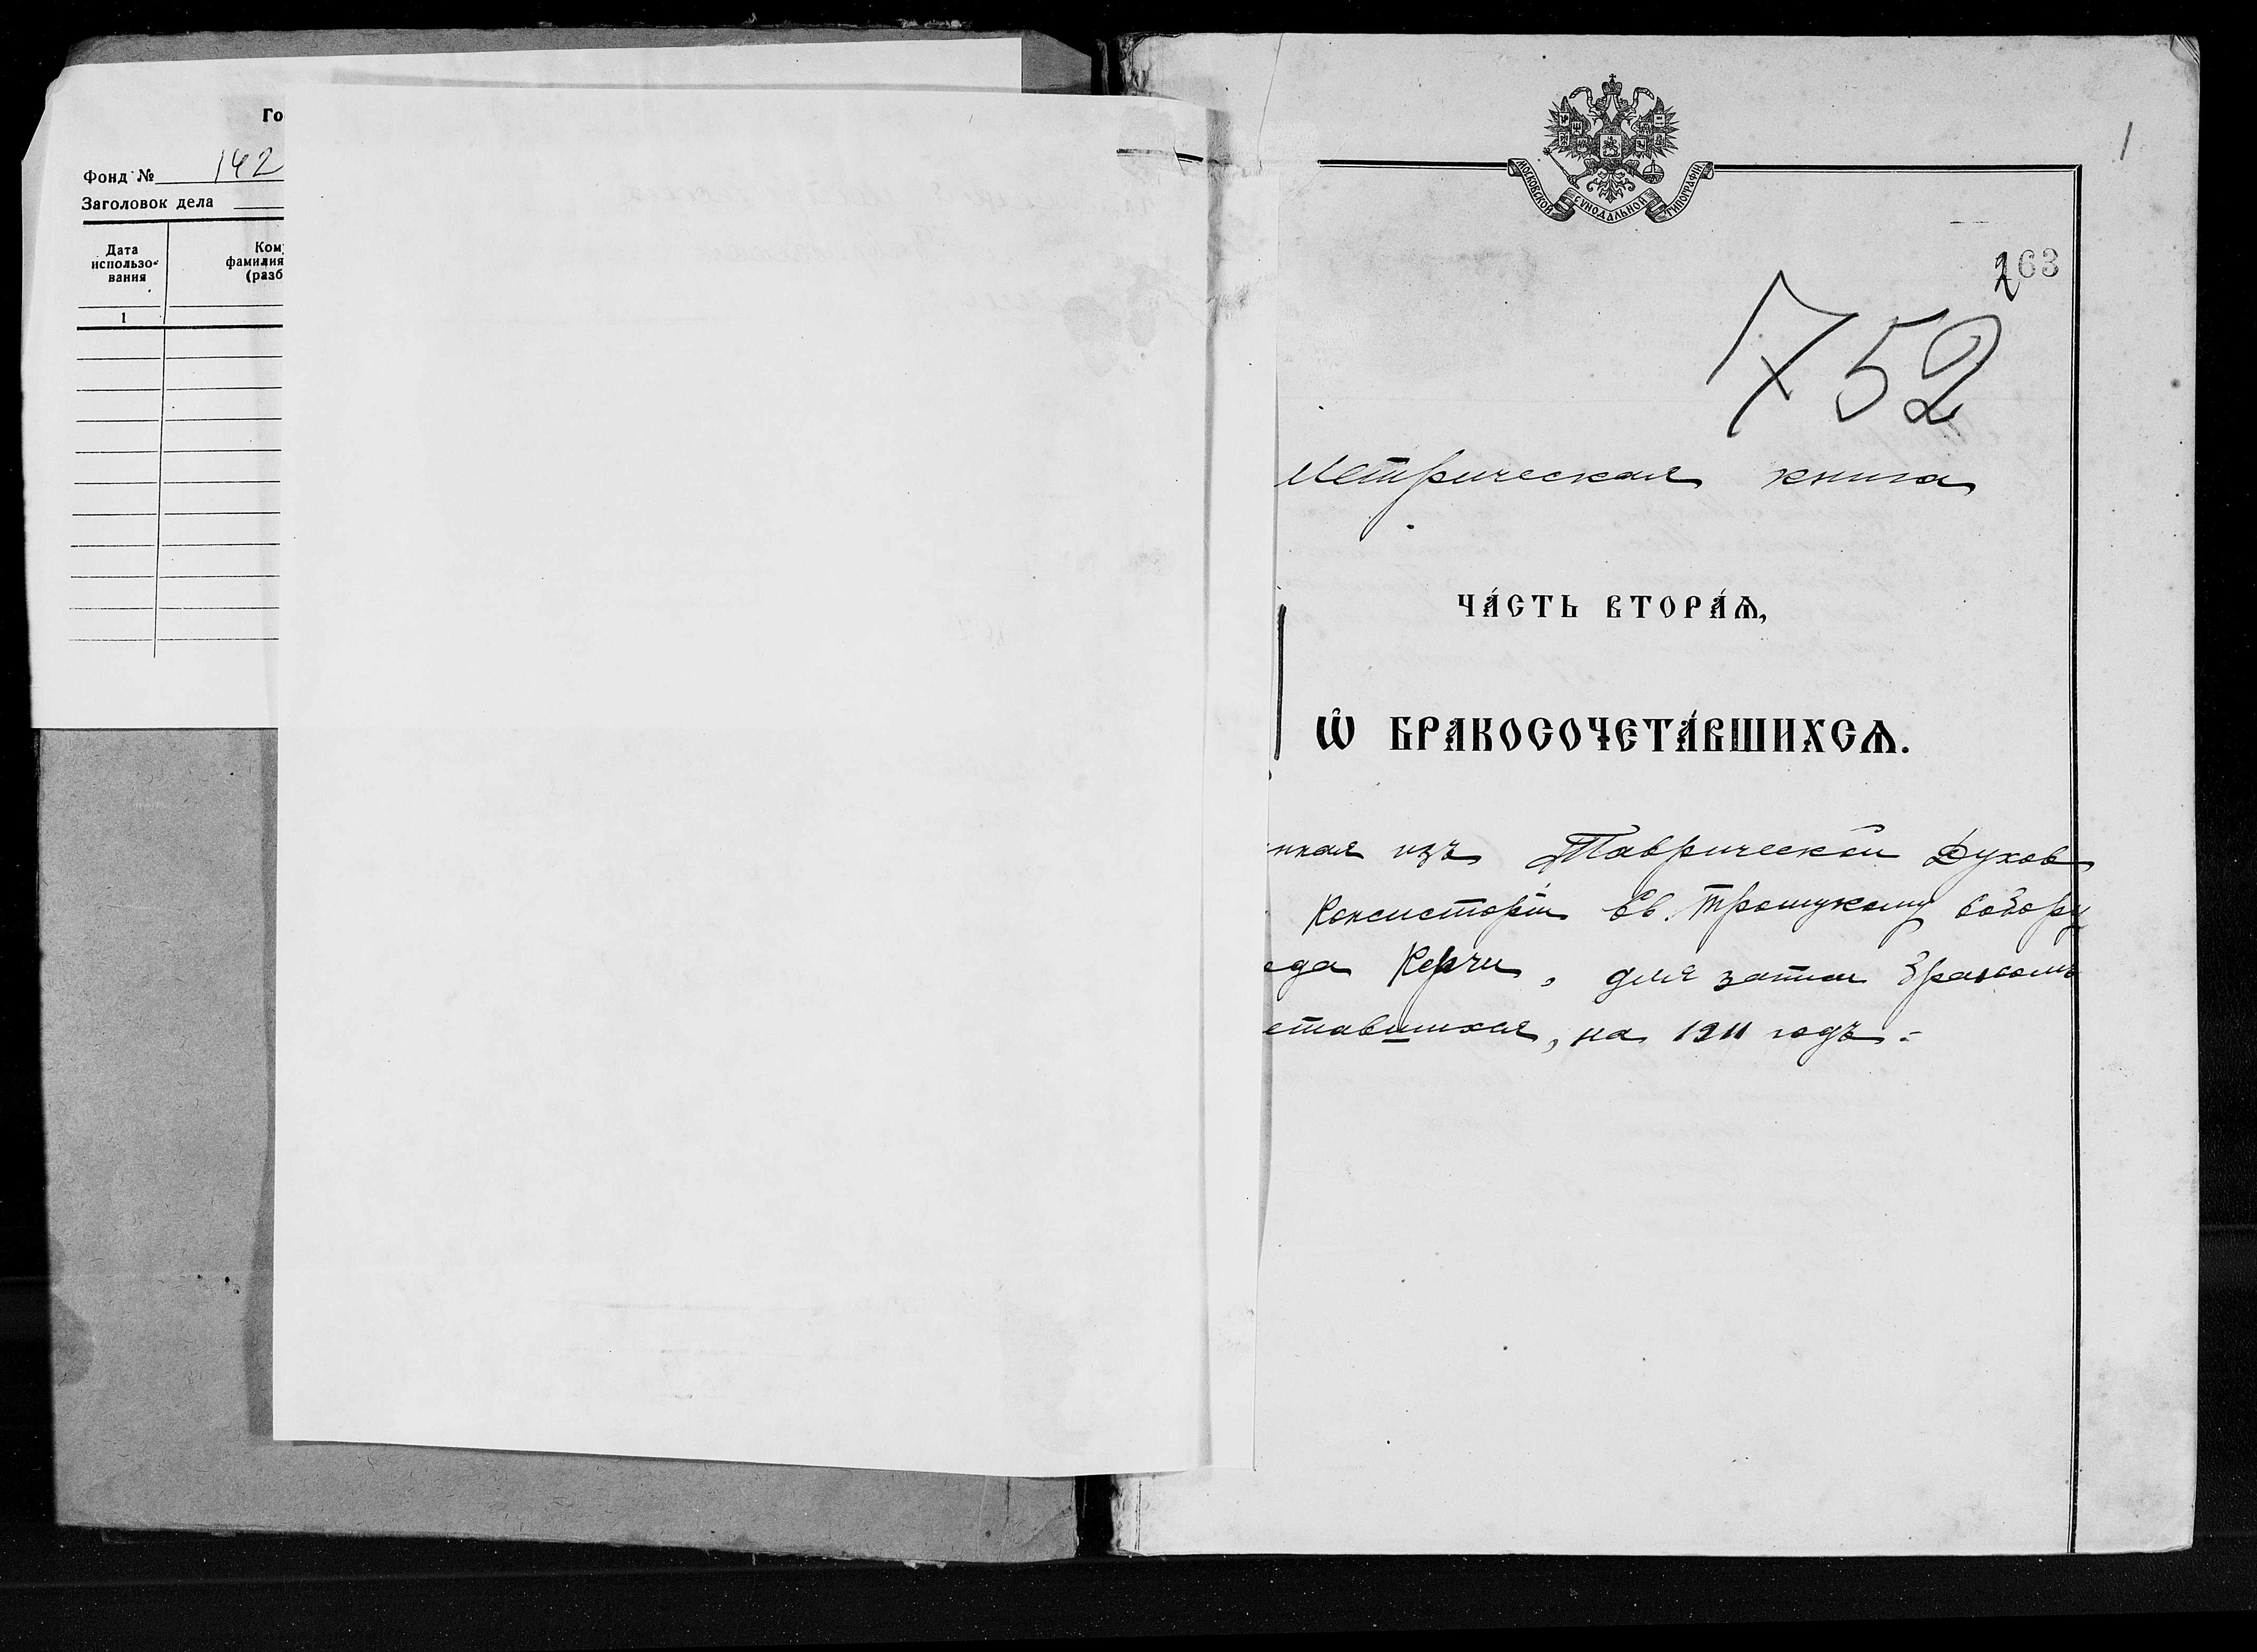 Го
Фонд № 142
Заголовок дела
Дата использо- вания
Кому
фамилия
(разб
1
МОСКОВСКОЙ СѴНОДАЛЬНОЙ ТИПОГРАФІИ.
1
263
752
Метрическая книга
ЧА́СТЬ ВТОРА́Ѧ,
Ѽ БРАКОСОЧЕТА́ВШИХСѦ.
нная изъ Таврической Духов
Консисторіи Св. Троицкому Собору
ода Керчи, для записи бракосо
етавшихся, на 1911 годъ.